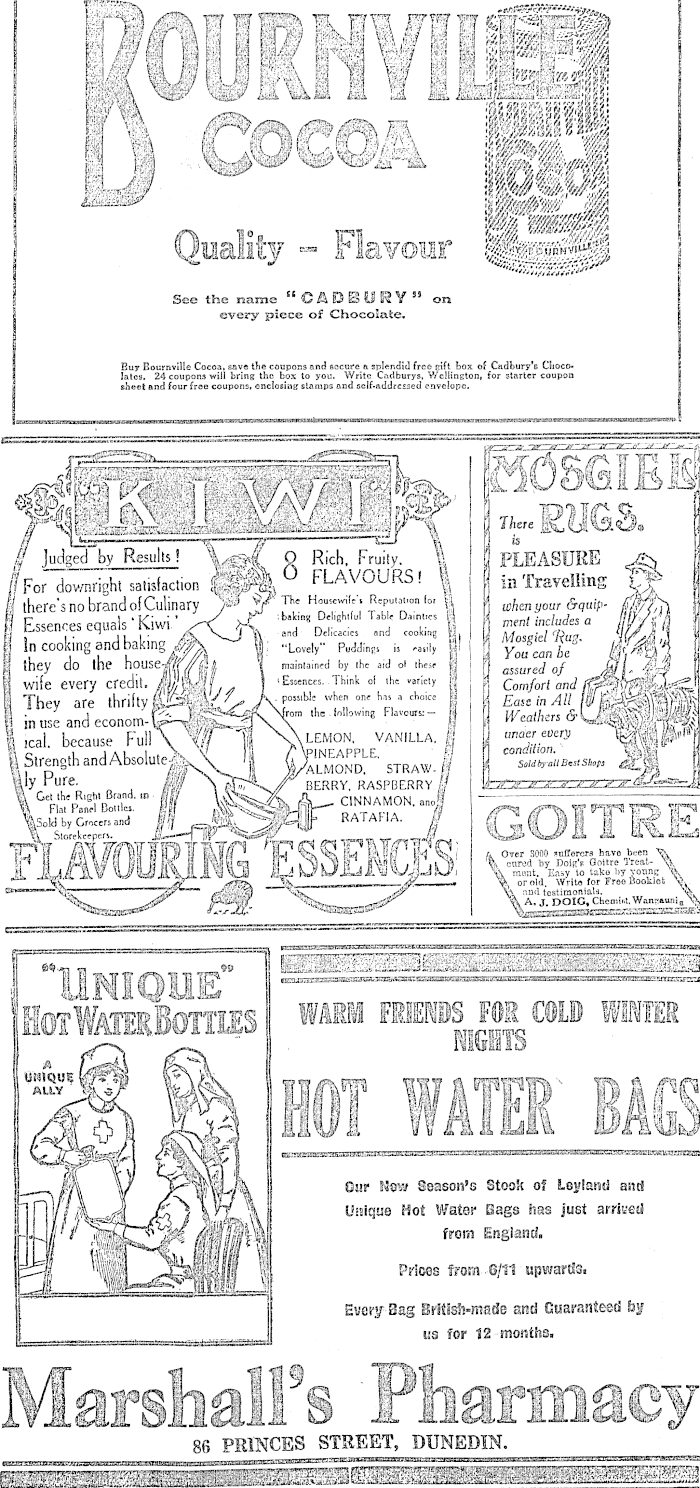 BOURNVILLE
COCOA
Quality - Flavour
See the name "CADBURY" on
every piece of Chocolate.
Buy Bournville Cocoa, save the coupons and secure a splendid free gift box of Cadbury's Choco-
lates. 24 coupons will bring the box to you. Write Cadburys, Wellington, for starter coupon
sheet and four free coupons, enclosing stamps and self-addressed envelope.
BOURNVILLE
"KIWI"
Judged by Results!
For downright satisfaction
there's no brand of Culinary
Essences equals 'Kiwi'
In cooking and baking
they do the house-
wife every credit.
They are thrifty
in use and econom-
ical, because Full
Strength and Absolute-
ly Pure.
Get the Right Brand, in
Flat Panel Bottles.
Sold by Grocers and
Storekeepers.
8 Rich, Fruity,
FLAVOURS!
The Housewife's Reputation for
baking Delightful Table Dainties
and Delicacies and cooking
"Lovely" Puddings is easily
maintained by the aid of these
Essences. Think of the variety
possible when one has a choice
from the following Flavours:—
LEMON, VANILLA,
PINEAPPLE,
ALMOND, STRAW-
BERRY, RASPBERRY
CINNAMON, and
RATAFIA.
FLAVOURING ESSENCES
MOSGIEL
RUGS.
There
is
PLEASURE
in Travelling
when your Equip-
ment includes a
Mosgiel Rug.
You can be
assured of
Comfort and
Ease in All
Weathers &
under every
condition.
Sold by all Best Shops
GOITRE
Over 3000 sufferers have been
cured by Doig's Goitre Treat-
ment. Easy to take by young
or old. Write for Free Booklet
and testimonials.
A. J. DOIG, Chemist, Wanganui
"UNIQUE"
HOT WATER BOTTLES
A
UNIQUE
ALLY
WARM FRIENDS FOR COLD WINTER
NIGHTS
HOT WATER BAGS
Our New Season's Stock of Leyland and
Unique Hot Water Bags has just arrived
from England.
Prices from 6/11 upwards.
Every Bag British-made and Guaranteed by
us for 12 months.
Marshall's Pharmacy
86 PRINCES STREET, DUNEDIN.